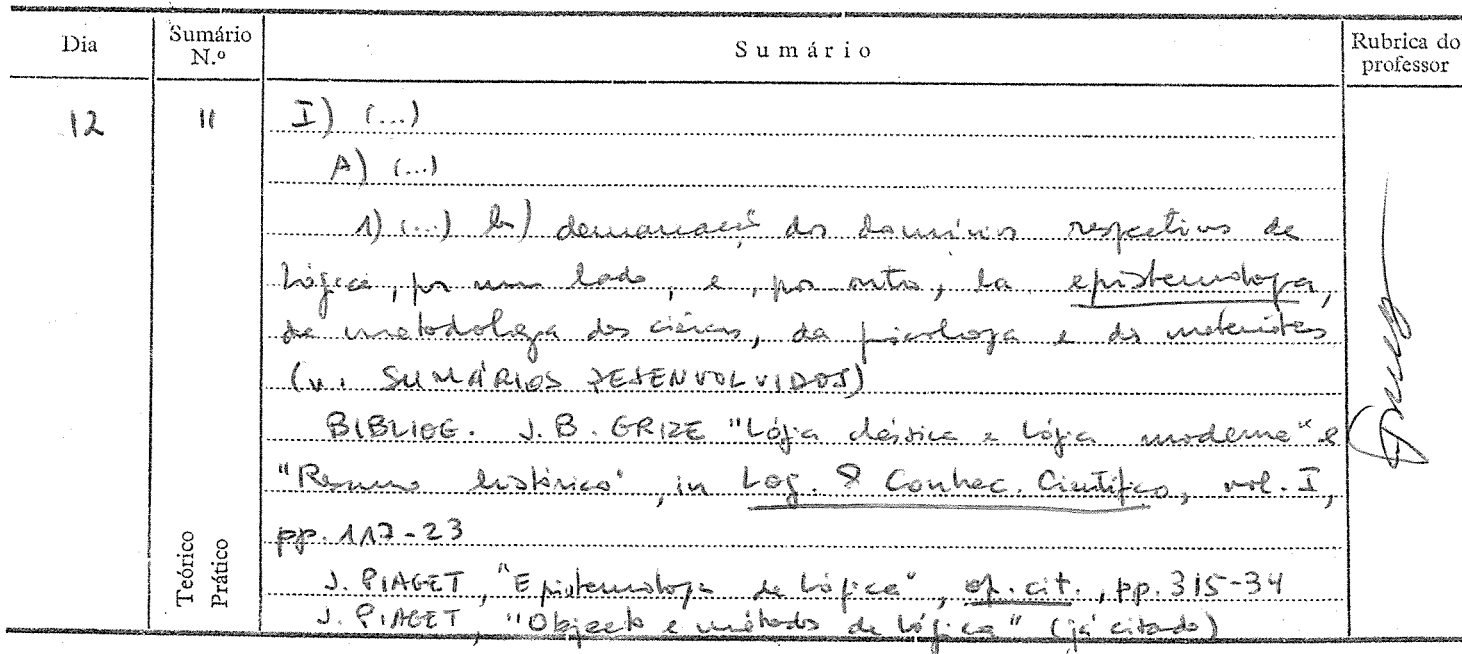 Dia Sumário N.º Sumário Rubrica do professor
12 11 I) (...)
A) (...)
1) (...) b) demarcação dos domínios respectivos da
Lógica, por um lado, e, por outro, da epistemologia,
da metodologia das ciências, da psicologia e das matemáticas
(v. SUMÁRIOS DESENVOLVIDOS)
BIBLIOG. J. B. GRIZE "Lógica clássica e Lógica moderna" e
"Resumo histórico", in Log. & Conhec. Científico, vol. I,
pp. 117-23
Teórico
Prático
J. PIAGET, "Epistemologia da Lógica", op. cit., pp. 315-34
J. PIAGET, "Objecto e métodos da lógica" (já citado)